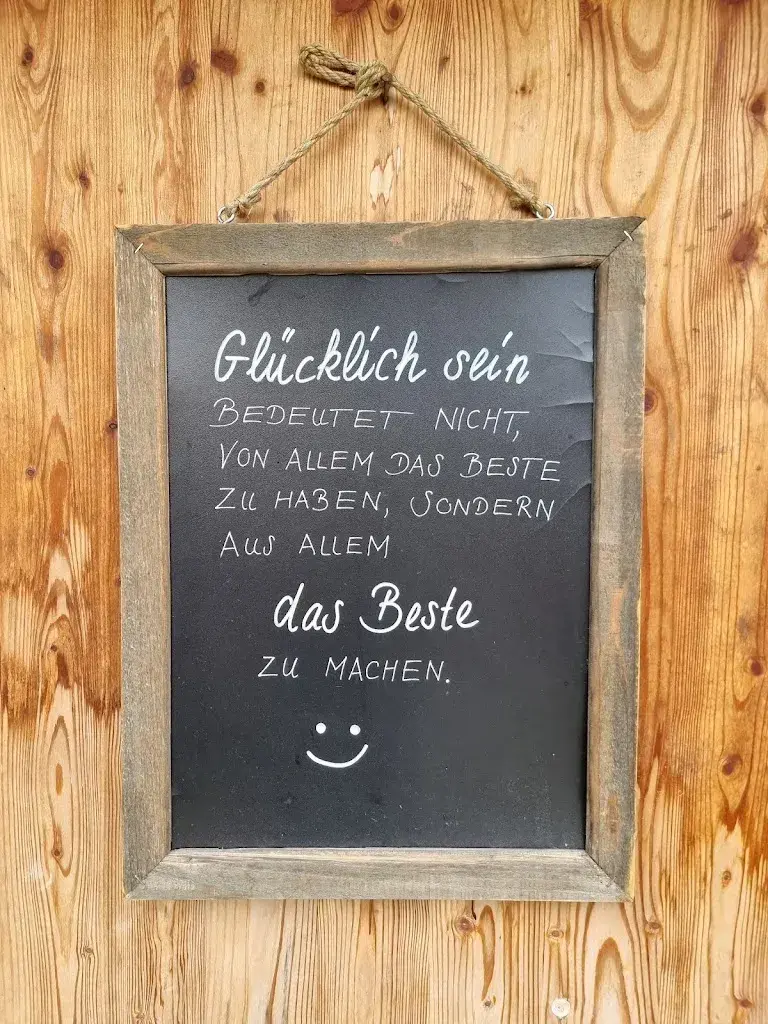 Glücklich sein
BEDEUTET NICHT,
VON ALLEM DAS BESTE
ZU HABEN, SONDERN
AUS ALLEM
das Beste
ZU MACHEN.